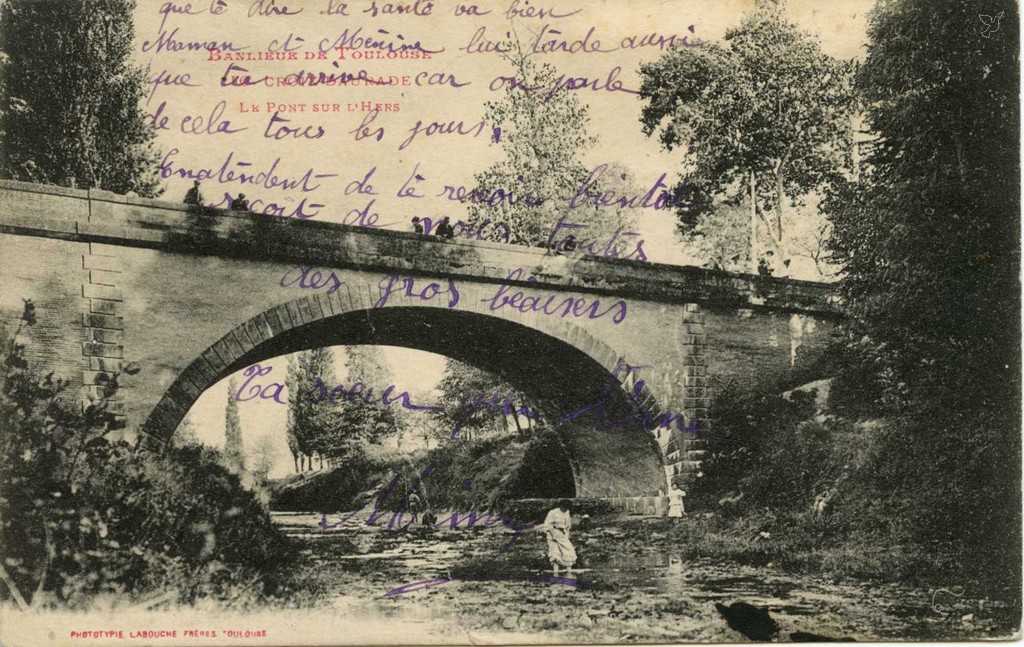 que te dire la santé va bien
Maman et Mémine lui tarde aussi
BANLIEUE DE TOULOUSE
que tu arrive car on parle
CROIX-DAURADE
LE PONT SUR L'HERS
de cela tous les jours,
Enatendent de te revoir bientôt
reçoit de nous toutes
des gros béaisers
Ta sœur qui t'aime
PHOTOTYPIE LABOUCHE FRÈRES TOULOUSE